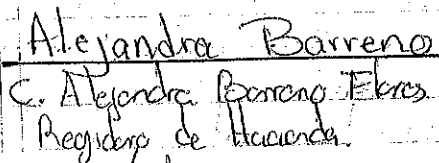 Alejandra Barreno
C. Alejandra Barreno Flores
Regidora de Hacienda.